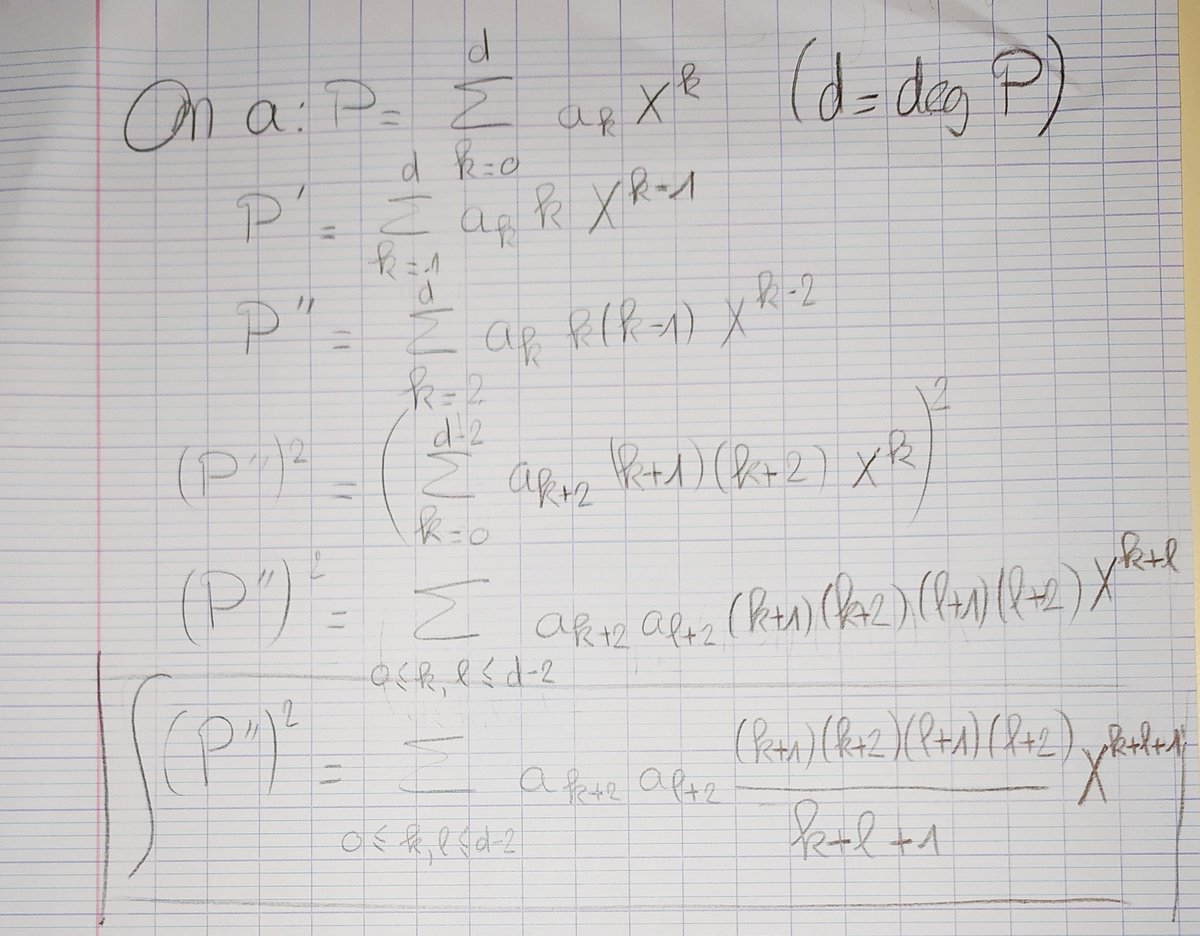 On a : P = \sum_{k=0}^{d} a_k X^k (d = deg P)
P' = \sum_{k=1}^{d} a_k k X^{k-1}
P'' = \sum_{k=2}^{d} a_k k(k-1) X^{k-2}
(P'')^2 = \left( \sum_{k=0}^{d-2} a_{k+2} (k+1)(k+2) X^k \right)^2
(P'')^2 = \sum_{0 \le k, l \le d-2} a_{k+2} a_{l+2} (k+1)(k+2)(l+1)(l+2) X^{k+l}
\int (P'')^2 = \sum_{0 \le k, l \le d-2} a_{k+2} a_{l+2} \frac{(k+1)(k+2)(l+1)(l+2)}{k+l+1} X^{k+l+1}